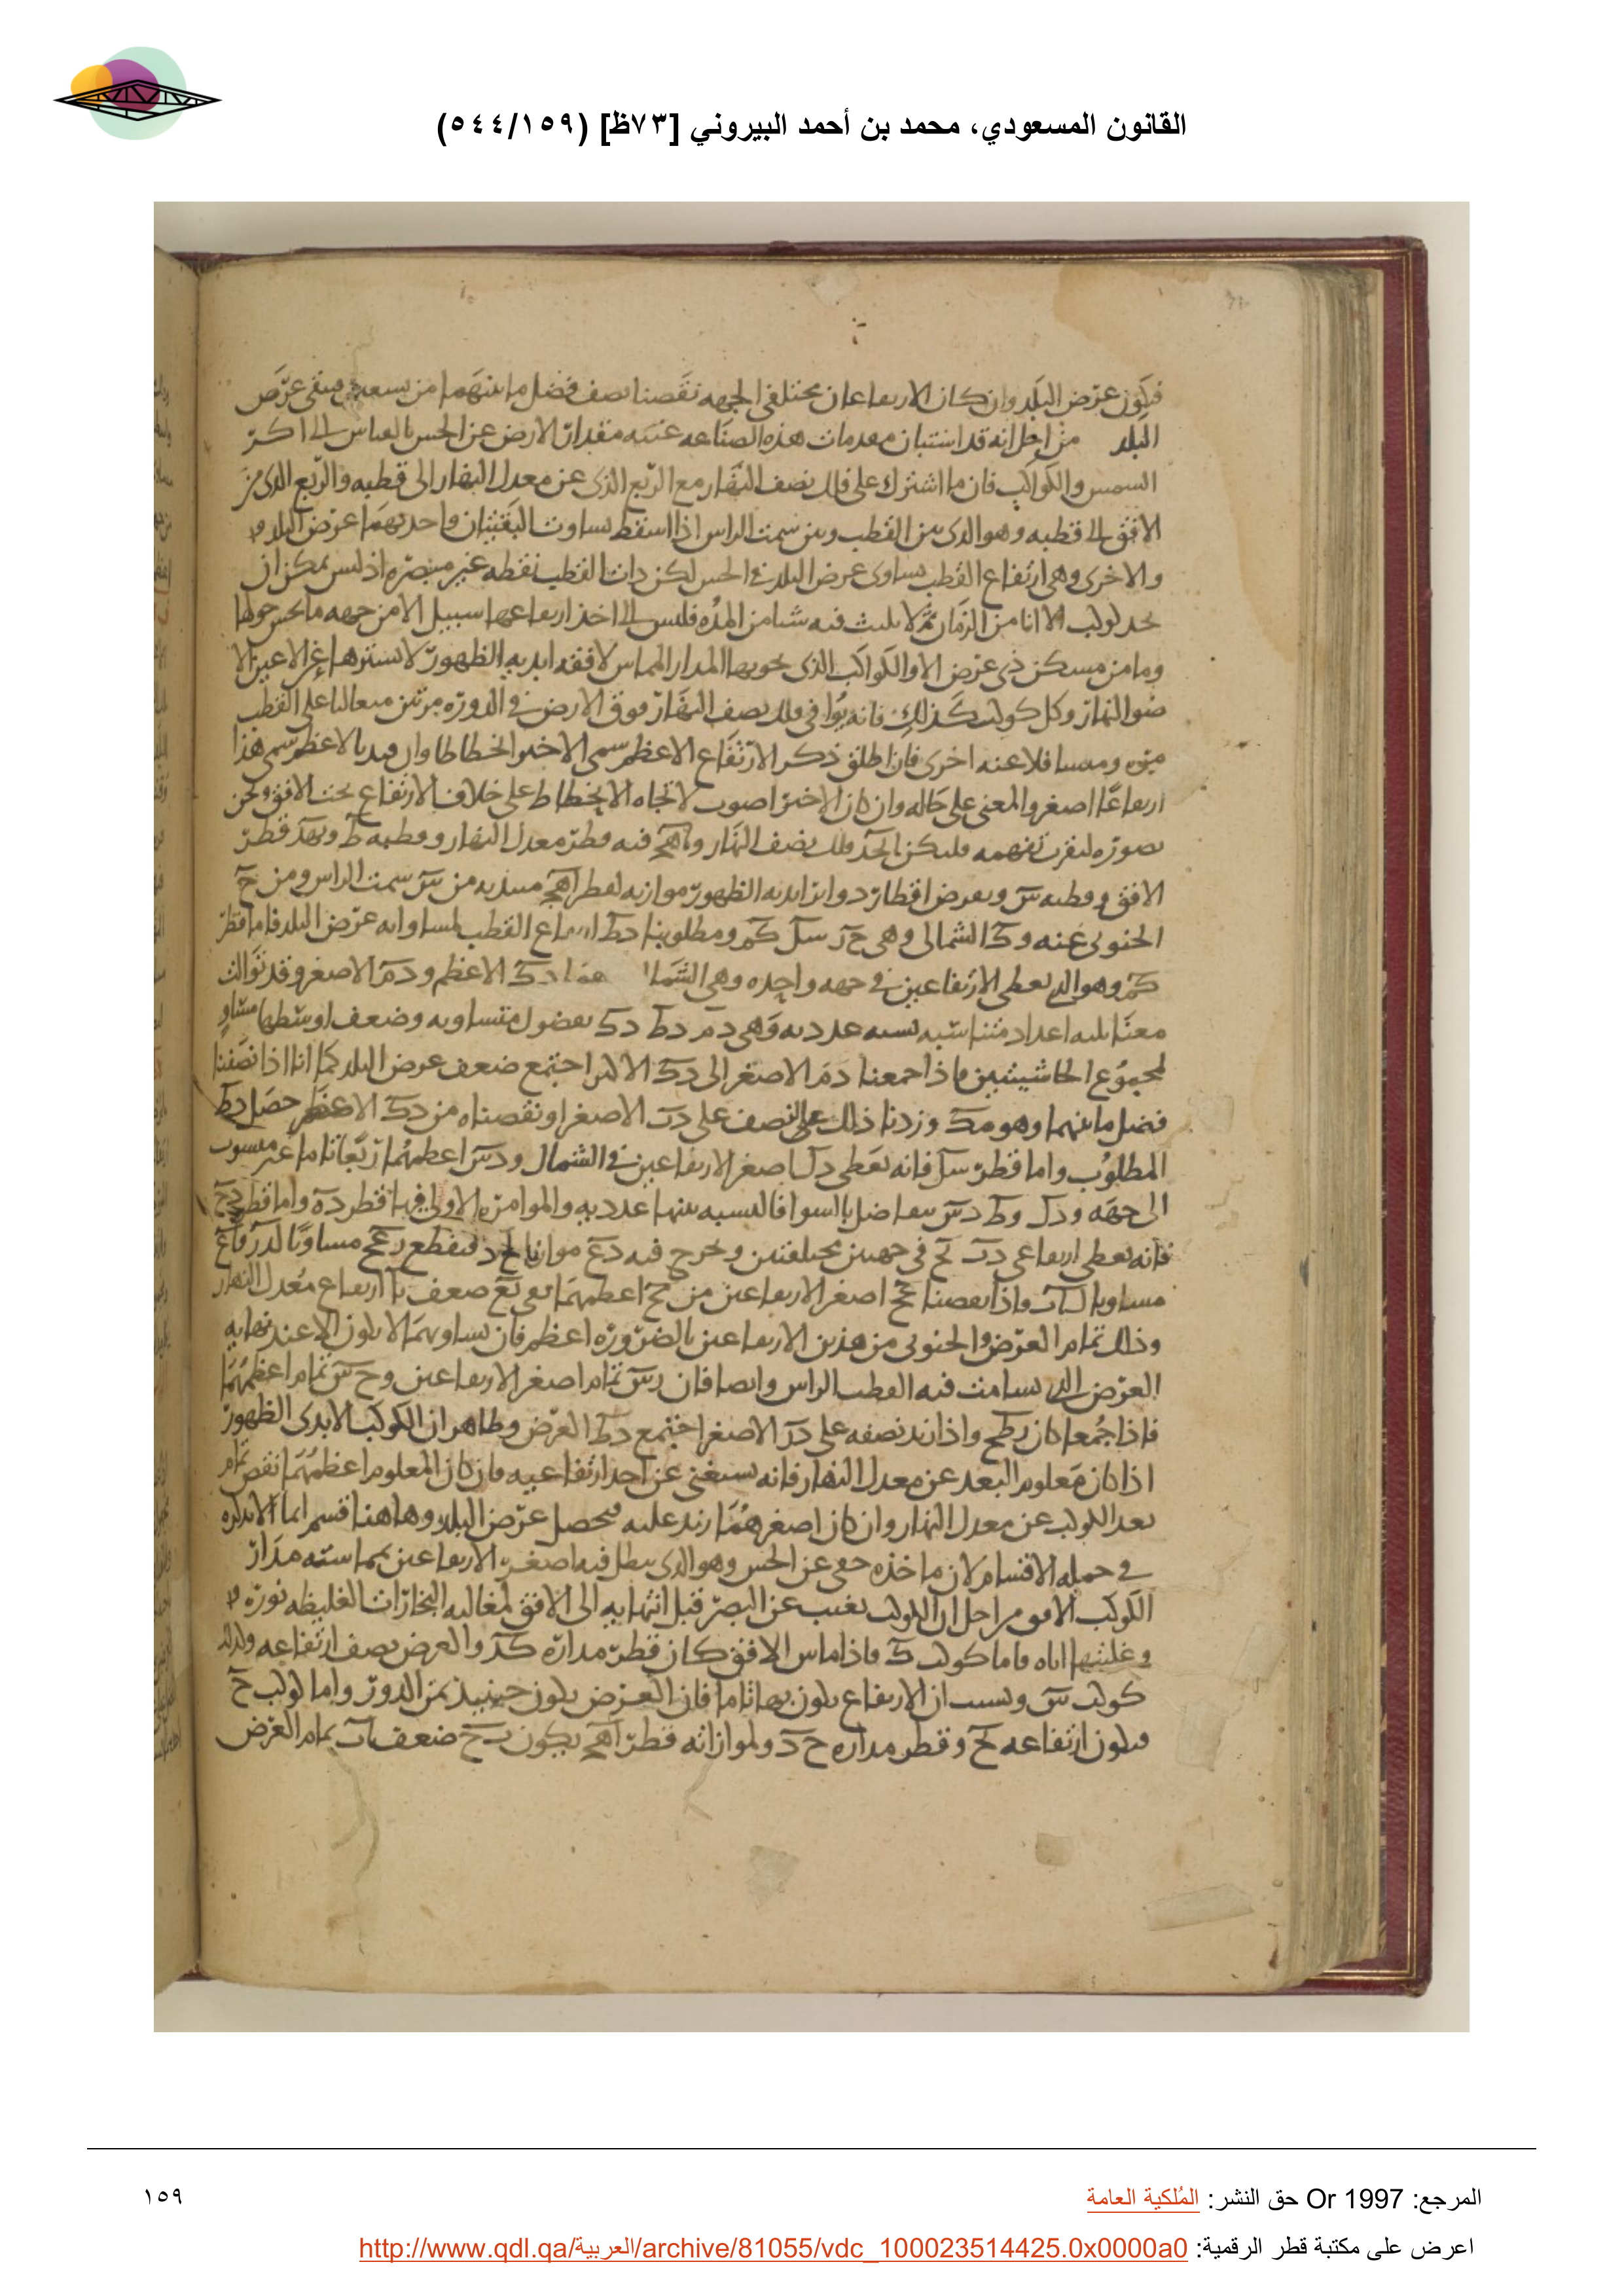 القانون المسعودي، محمد بن أحمد البيروني [٧٣ظ] (٥٤٤/١٥٩)
فيكون عرض البلد وان كان الارتفاعان مختلفي الجهه نقصنا نصف فضل ما بينهما من تسعين فيبقى عرض
البلد من اجل انه قد استبان بمقدمات هذه الصناعه مقدار الارض عن الحس بالقياس الى اكر
الشمس والكواكب فان ما اشترك على فلك نصف النهار مع الربع الذى عن معدل النهار الى قطبه والربع الذى من
الافق الى قطبه وهو الذى بين القطب وبين سمت الراس اذا اسقط تساوت البقيتان واحديهما عرض البلد
والاخرى وهى ارتفاع القطب يساوى عرض البلد فى الحس لكن ذات القطب نقطه غير مبصره اذ ليس يمكن ان
لكوكب الا انا من الزمان ثم لا يلبث فيه شيا من المده فليس الى اخذ ارتفاعها سبيل الا من جهه ما حولها
وما من مسكن ذى عرض الا والكواكب الذى يحويها المدار المماس لافقه ابديه الظهور لا يسترها عن الاعين الا
ضو النهار وكل كوكب كذلك فانه يوافى فلك نصف النهار فوق الارض فى الدوره مرتين متعاليا على القطب
مره ومتسافلا عنه اخرى فان اطلق ذكر الارتفاع الاعظم سمى الاخير انحطاطا وان قيد بالاعظم سمى هذا
ارتفاعا اصغر والمعنى على حاله وان كان الاخير اصوب لاتجاه الانحطاط على خلاف الارتفاع تحت الافق ونحن
نصوره ليقرب تفهمه فليكن فلك نصف النهار و اهج فيه قطر معدل النهار وقطبه ط و قطر
الافق وقطبه س ونفرض اقطار دوائر ابديه الظهور موازيه لقطر اهج مبتديه من س سمت الراس ومن ح
الجنوبى عنه و ك الشمالى وهى ح ز س ل ك م ومطلوبنا د ط ارتفاع القطب لمساواته عرض البلد فاما قطر
ك م وهو الذى يعطى الارتفاعين فى جهه واحده وهى الشمال د ك الاعظم و د م الاصغر وقد توالت
معنا ثلثه اعداد متناسبه نسبه عدديه وهى د م د ط د ك بفضول متساويه وضعف اوسطها مساو
لمجموع الحاشيتين فاذا جمعنا د م الاصغر الى د ك الاكبر اجتمع ضعف عرض البلد كما انا اذا نصفنا
فضل ما بينهما وهو م ك وزدنا ذلك النصف على الاصغر او نقصناه من د ك الاعظم حصل د ط
المطلوب واما قطر س ل فانه يعطى د ل اصغر الارتفاعين فى الشمال و د س اعظمهما ربعا تاما غير منسوب
الى جهه و د ل و ط د س تتفاضل بالسوا فالنسبه بينها عدديه والموامره الاولى فيها قطر واما قطر
فانه يعطى ارتفاعى فى جهتين مختلفتين ونخرج فيه موازيا فيقطع مساويا
مساويا واذا نقصنا اصغر الارتفاعين من اعظمهما بقى ضعف ارتفاع معدل النهار
وذلك تمام العرض والجنوبى من هذين الارتفاعين بالضروره اعظم فان تساويهما لا يكون الا عند نهايه
العرض الذى يسامت فيه القطب الراس وايضا فان ز س تمام اصغر الارتفاعين و ح س تمام اعظمهما
فاذا جمعا كان واذا زيد نصفه على د ز الاصغر اجتمع د ط العرض وظاهر ان الكوكب الابدى الظهور
اذا كان معلوم البعد عن معدل النهار فانه يستغنى عن احد ارتفاعيه فان كان المعلوم اعظمهما نقص تمام
بعد الكوكب عن معدل النهار وان كان اصغرهما زيد عليه فيحصل عرض البلد وهاهنا قسم
فى جمله الاقسام لان ماخذه خفى عن الحس وهو الذى يبطل فيه اصغر الارتفاعين بمماسته مدار
الكوكب الافق من اجل ان الكوكب يغيب عن البصر قبل انتهايه الى الافق البخارات الغليظه نوره
وغلبتها اياه فاما كوكب ك فاذا ماس الافق كان قطر مداره ك د والعرض نصف ارتفاعه وكذلك
كوكب س وبسبب ان الارتفاع يكون بها تاما فان العرض يكون حينيذ ثمن الدور واما كوكب ح
فيكون ارتفاعه وقطر مداره ح د ولموازاته قطر اهج يكون ضعف تمام العرض
المرجع: Or 1997 حق النشر: المُلكية العامة
١٥٩
اعرض على مكتبة قطر الرقمية: http://www.qdl.qa/العربية/archive/81055/vdc_100023514425.0x0000a0